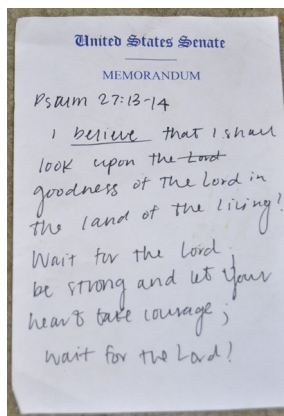 United States Senate
MEMORANDUM
Psalm 27:13-14
I believe that I shall
look upon the Lord
goodness of the Lord in
the land of the living!
Wait for the Lord;
be strong and let your
heart take courage;
wait for the Lord!